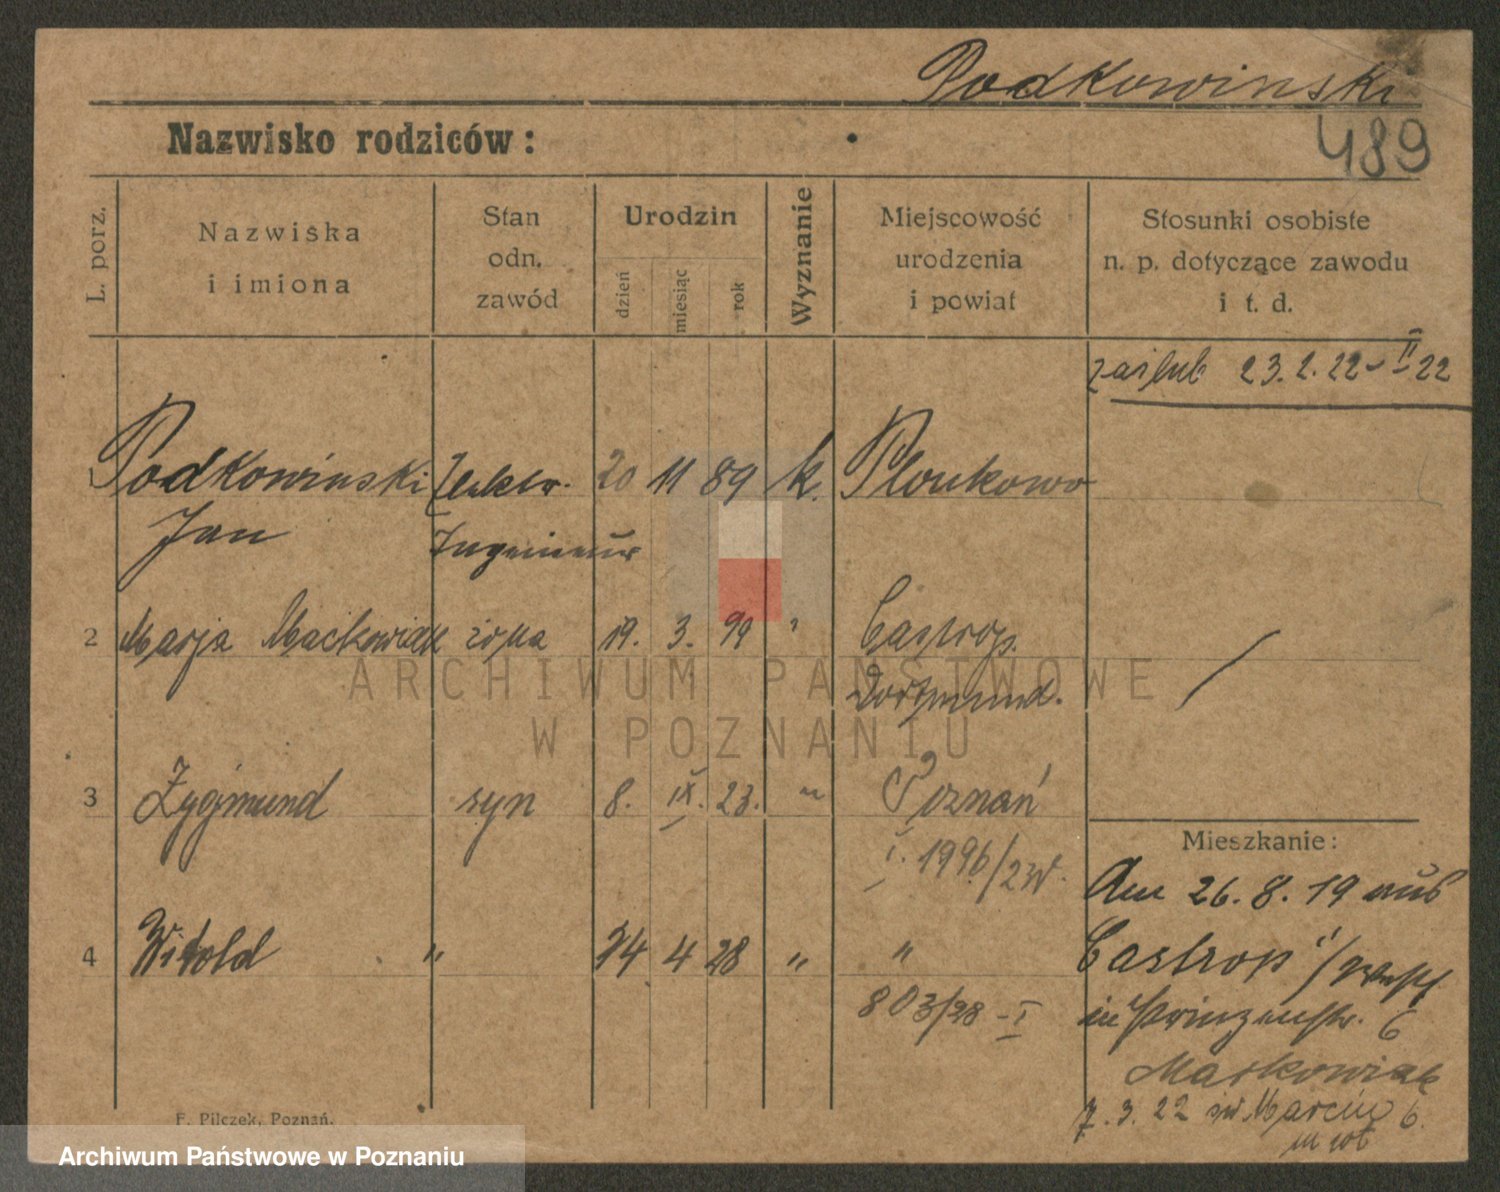 Podkowinski
Nazwisko rodziców:
489
L. porz.
Nazwiska
i imiona
Stan
odn.
zawód
Urodzin
dzień
miesiąc
rok
Wyznanie
Miejscowość
urodzenia
i powiat
Stosunki osobiste
n. p. dotyczące zawodu
i t. d.
zaślub 23.2.22 - II 22
1 Podkowinski 20 11 89 k.
Jan Ingenieur
2 Marja Mackowiak żona 19. 3. 99 " Castrop.
Dortmund.
3 Zygmund syn 8. IX. 23. " Poznań
I. 1996/23
4 Witold " 24 4 28 " "
803/28 - I
Mieszkanie:
Am 26.8.19 aus
Castrop
in Prinzenstr. 6
Markowiak
7.3.22 św. Marcin 6.
F. Pilczek, Poznań.
ARCHIWUM PAŃSTWOWE
W POZNANIU
Archiwum Państwowe w Poznaniu